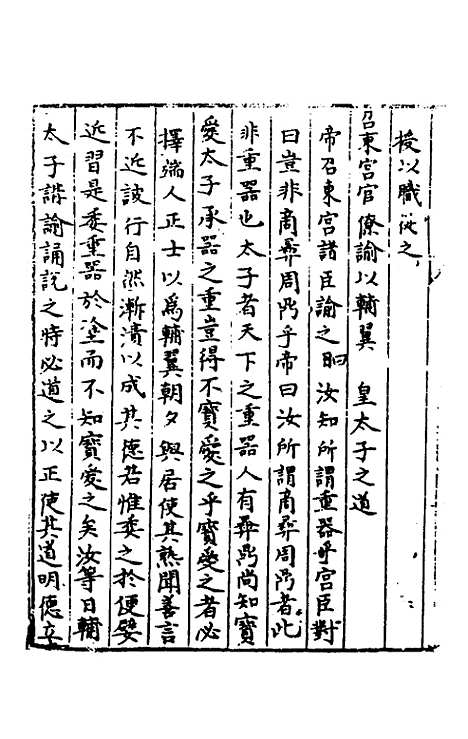 授以職從之
召東宮官僚諭以輔翼 皇太子之道
帝召東宮諸臣諭之曰汝知所謂重器乎宮臣對
曰豈非商彝周鼎乎帝曰汝所謂商彝周鼎者此
非重器也太子者天下之重器人有彝鼎尚知寶
愛太子承器之重豈得不寶愛之乎寶愛之者必
擇端人正士以爲輔翼朝夕與居使其熟聞善言
不近詖行自然漸漬以成其德若惟委之於便嬖
近習是委重器於塗而不知寶愛之矣汝等日輔
太子講諭誦説之時必道之以正使其道明德立